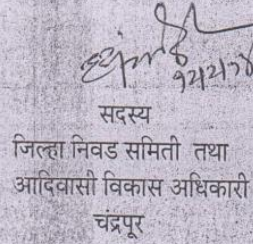 सदस्य
जिल्हा निवड समिती तथा
आदिवासी विकास अधिकारी
चंद्रपूर